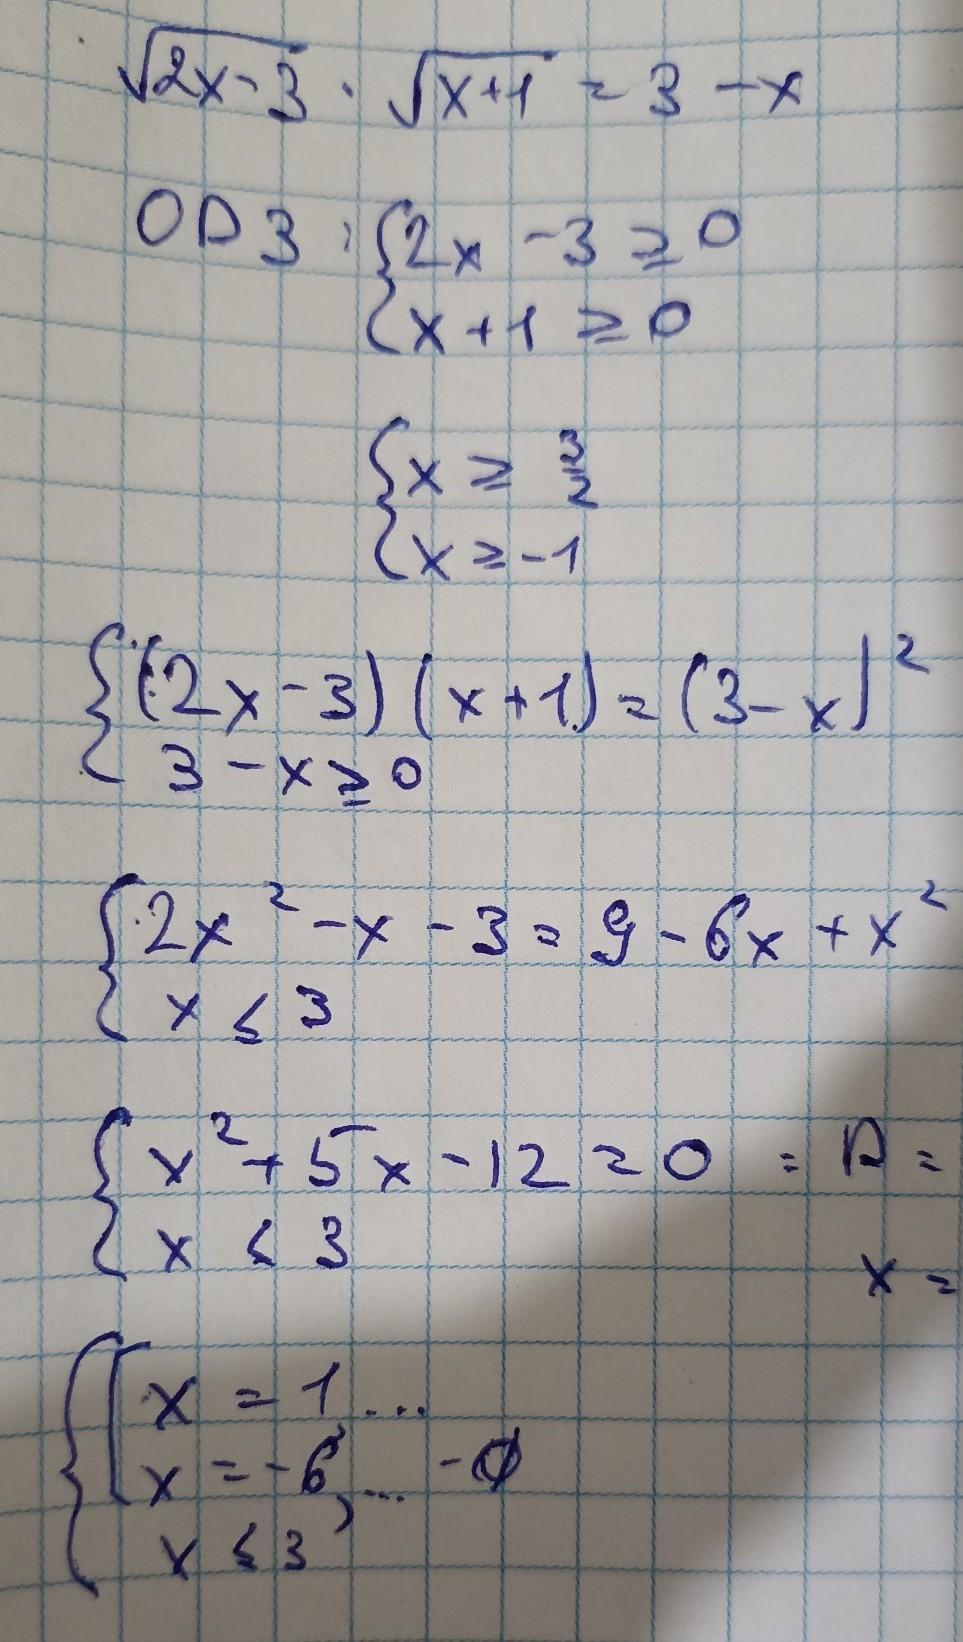 √2x-3 · √x+1 = 3 - x
ОДЗ : { 2x - 3 ≥ 0
x + 1 ≥ 0
{ x ≥ 3/2
x ≥ -1
{ (2x - 3) (x + 1) = (3 - x)²
3 - x ≥ 0
{ 2x² - x - 3 = 9 - 6x + x²
x ≤ 3
{ x² + 5x - 12 = 0 = D =
x ≤ 3
x =
{ [ x = 1, ...
x = -6, ... - ∅
x ≤ 3